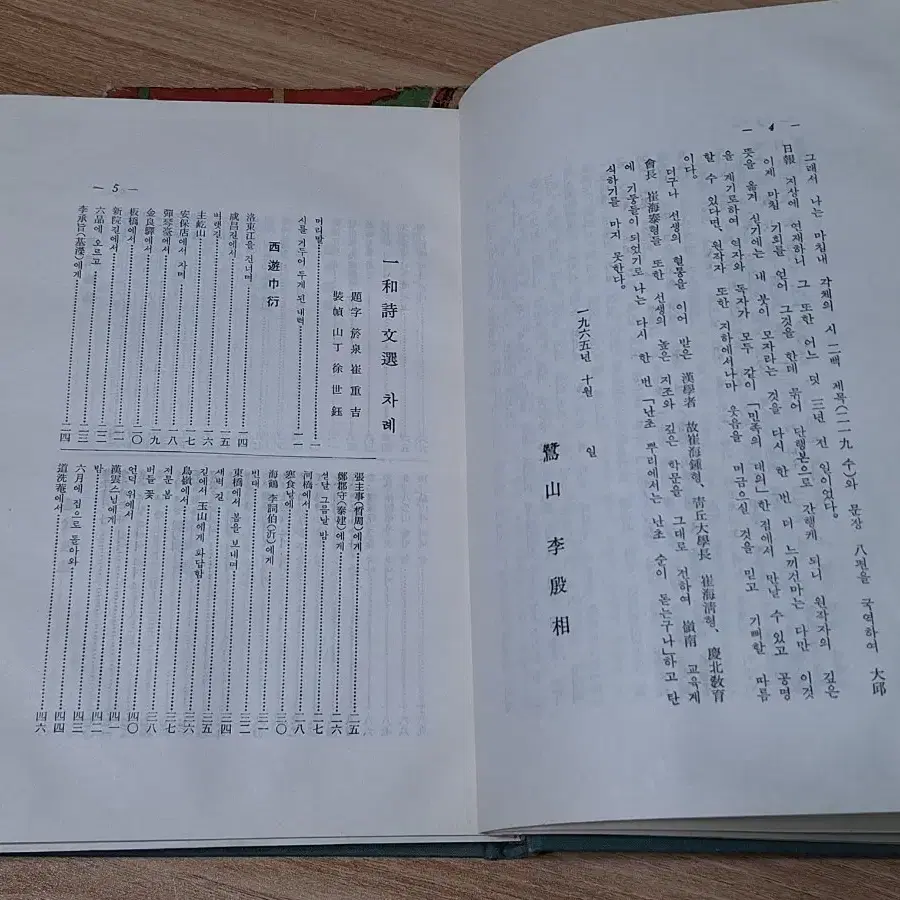 — 4 —
그래서 나는 마침내 각체의 시 二백 제목(二一九수)와 문장 八편을 국역하여 大邱
日報 지상에 연재하니 그 또한 어느 덧 三년 전 일이었다.
이제 마침 기회를 얻어 그것을 한데 묶어 단행본으로 간행케 되니 원작자의 깊은
뜻을 옮겨 심기에는 내 붓이 모자라는 것을 다시 한 번 더 느끼거니와 다만 이것
을 계기로하여 역자와 독자가 모두 같이 「민족의 대의」한 점에서 만날 수 있고 공명
할 수 있다면, 원작자 또한 지하에서나마 웃음을 머금으실 것을 믿고 기뻐할 따름
이다.
더구나 선생의 혈통을 이어 받은 漢學者 故崔海鍾형, 靑丘大學長 崔海淸형, 慶北敎育
會長 崔海泰형들 또한 선생의 높은 지조와 깊은 학문을 그대로 전하여 嶺南 교육계
에 기둥들이 되었기로 나는 다시 한 번 「난초 뿌리에서는 난초 순이 돋는구나」하고 탄
식하기를 마지 못한다.
一九六五년 十월 일
鷺山 李殷相
— 5 —
一和詩文選 차례
題字 於泉 崔重吉
裝幀 山丁 徐世鈺
머리말
시를 거두어 두게 된 내력
西遊巾衍
洛東江을 건너며 一四
咸昌길에서 一五
버랫길 一六
主屹山 一七
安保店에서 자며 一八
彈琴臺에서 一九
金良驛에서 二〇
板橋에서 二一
新院길에서 二二
六品에 오르고 二三
李承旨(基瀅)에게 二四
張主事(晳周)에게 二五
鄭郡守(泰建)에게 二六
섣달 그믐날 밤 二七
河橋에서 二八
寒食날에 三〇
海鶴 李詞伯(沂)에게 三一
빈대 三二
東橋에서 봄을 보내며 三四
새벽 길 三五
길에서 玉山에게 화답함 三六
鳥嶺에서 三七
저문 봄 三八
버들 꽃 四〇
언덕 위에서 四一
漢雲스님에게 四二
밤 四三
六月에 집으로 돌아와 四四
道洗菴에서 四六